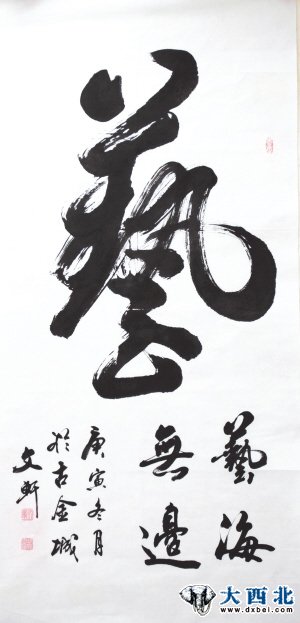 藝
藝海
無邊
庚寅冬月
於古金城
文軒
大西北
www.dxbei.com